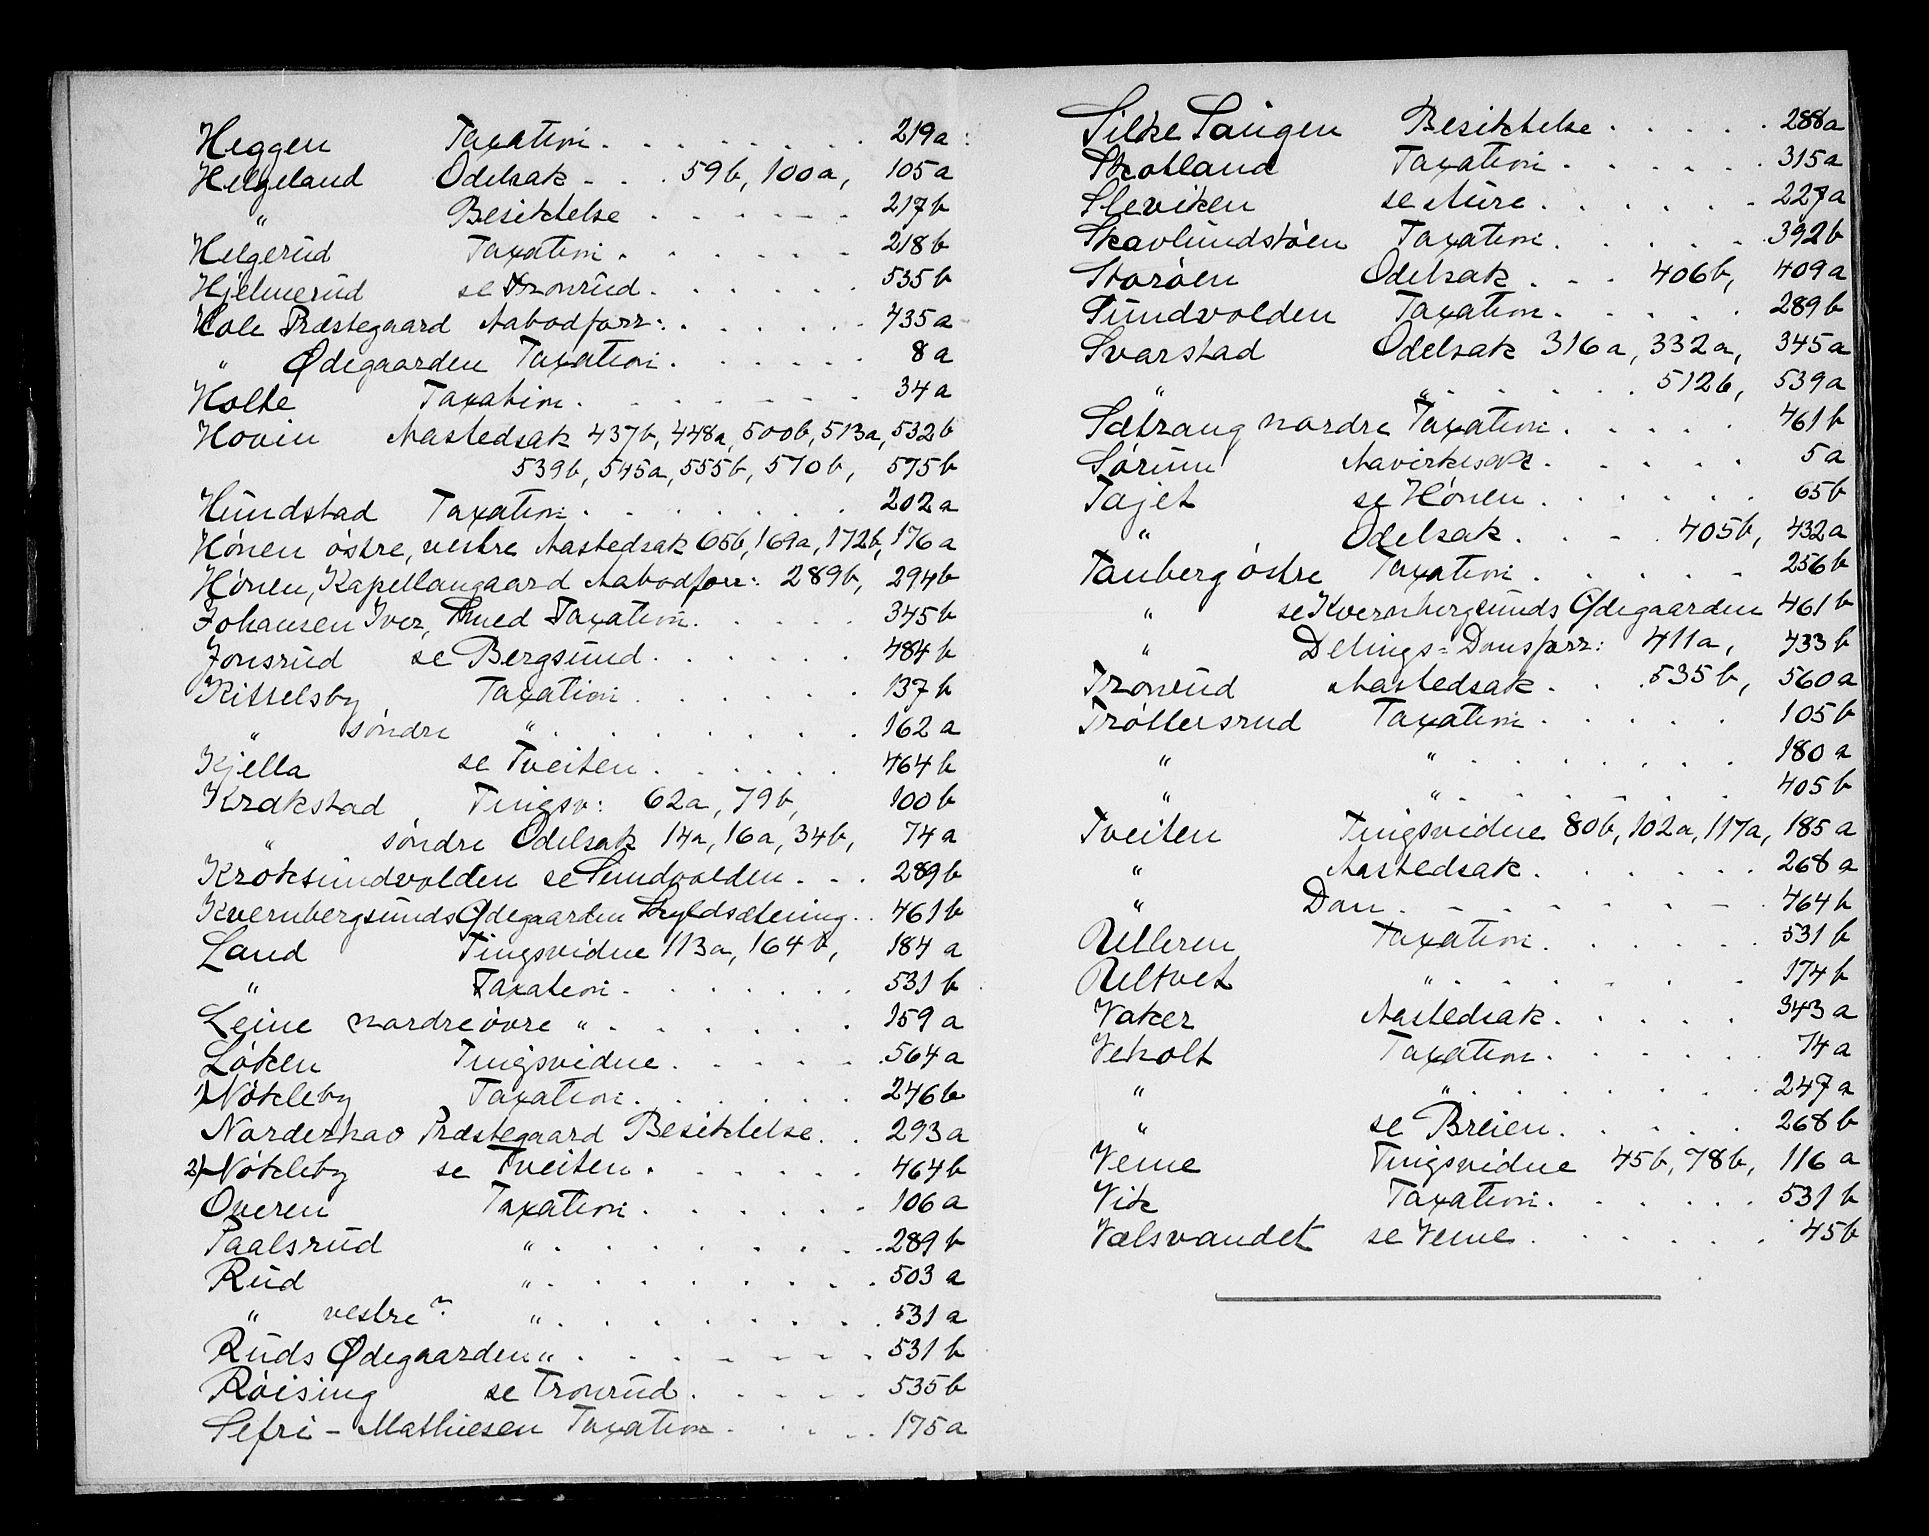 Heggen Taxation . . . . . . . . 219a
Helgeland Odelsak - . . 59b, 100a, 105a
" Besiktelse . . . . . . 217b
Helgerud Taxation . . . . . . 218b
Hjelmerud se Tronrud . . . . . . 535b
Hole Præstegaard Aabodforr: . . . . . . 435a
" Ødegaarden Taxation . . . . . 8a
Holte Taxation . . . . . . . 34a
Hovin Aastedsak 437b, 448a, 500b, 513a, 532b
539b, 545a, 555b, 570b, 575b
Hundstad Taxation . . . . . . . 202a
Hønen østre, vestre Aastedsak 65b, 169a, 172b, 176a
Hønen, Kapellangaard Aabodforr: 289b, 294b
Johansen Iver, Smed Taxation . . . . . 345b
Jonsrud se Bergsund . . . . . . 484b
Kittelsby Taxation . . . . . . 137b
" søndre " . . . . . . . . 162a
Kjella se Tveiten . . . . . . 464b
Krakstad Tingsv: 62a, 79b, 100b
" søndre Odelsak 14a, 16a, 34b, 74a
Kroksundvolden se Sundvolden . . . 289b
Kvernbergsunds Ødegaarden Skyldsætning . . 461b
Land Tingsvidne 113a, 164b, 184a
" Taxation . . . . . . . 531b
Leine nordre øvre " . . . . . . . 159a
Løken Tingsvidne . . . . . 564a
1) Nøkleby Taxation . . . . . . 246b
Norderhov Præstegaard Besiktelse . . 293a
2) Nøkleby se Tveiten . . . . . . 464b
Overen Taxation . . . . . . 106a
Paalsrud " . . . . . . . . 289b
Rud " . . . . . . . . 503a
" vestre " . . . . . . . . 531a
Ruds Ødegaarden " . . . . . . . 531b
Røising se Tronrud . . . . . 535b
Sefri - Mathiesen Taxation . . . . . 175a
Silke Saugen Besiktelse . . . . . 288a
Skotland Taxation . . . . . . 315a
Sleviken se Aure . . . . . . 227a
Skavlundstøen Taxation . . . . . 392b
Storøen Odelsak . . . 406b, 409a
Sundvolden Taxation . . . . . 289b
Svarstad Odelsak 316a, 332a, 345a
" " . . . . . . 512b, 539a
Sætrang nordre Taxation . . . . . 461b
Sørum Aavirkesak . . . . . 5a
Tajet se Hønen . . . . . . 65b
" Odelsak . . . . 405b, 432a
Tanberg østre Taxation . . . . . 256b
" se Kvernbergsunds Ødegaarden 461b
" Delings= Domsforr: 411a, 433b
Tronrud Aastedsak . . . 535b, 560a
Trøttersrud Taxation . . . . . 105b
" " . . . . . . . 180a
" " . . . . . . . 405b
Tveiten Tingsvidne 80b, 102a, 117a, 185a
" Aastedsak . . . . . . 268a
" Dom . - . - . . - 464b
Ulleren Taxation . . . . . . 531b
Ultvet " . . . . . . . 174b
Vaker Aastedsak . . . . . 343a
Veholt Taxation . . . . . . 74a
" " . . . . . . . 247a
" se Breien . . . . . 268b
Veme Tingsvidne 45b, 78b, 116a
Vik Taxation . . . . . . 531b
Vælsvandet se Veme . . . . . . 45b